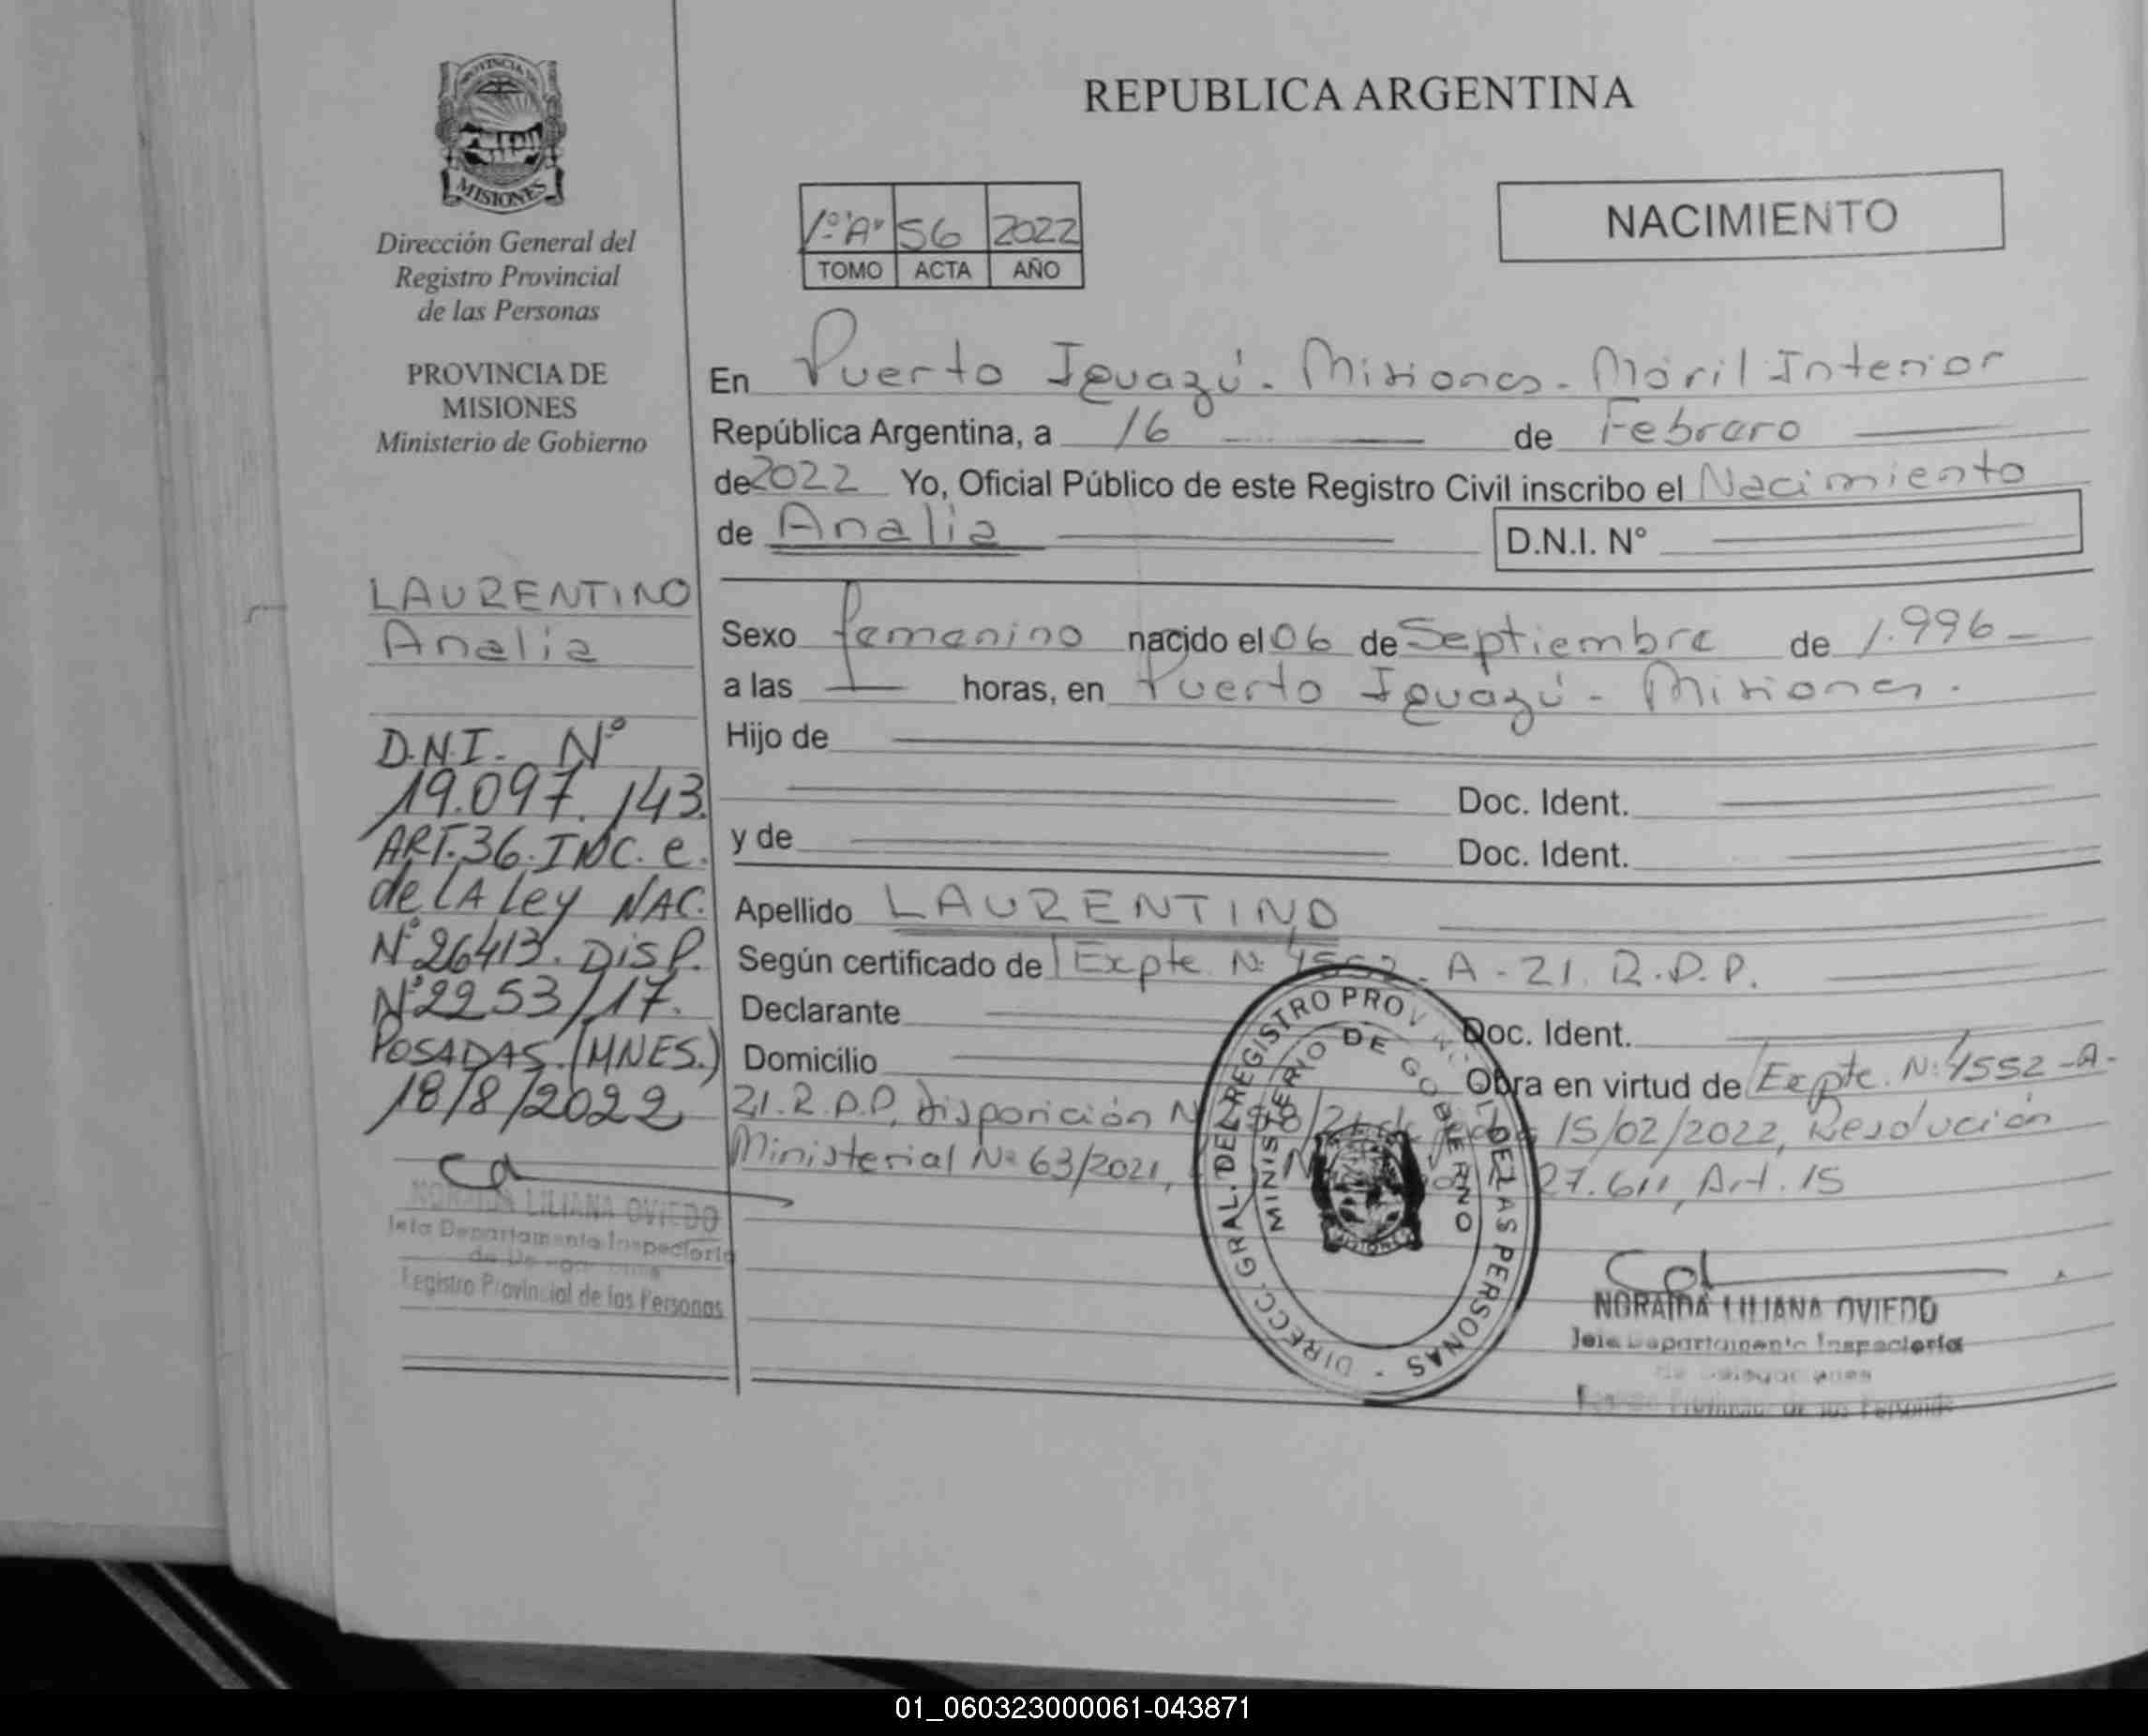 REPUBLICA ARGENTINA
PROVINCIA DE
MISIONES
Dirección General del
Registro Provincial
de las Personas
PROVINCIA DE
MISIONES
Ministerio de Gobierno
1º "A" 56 2022
TOMO ACTA AÑO
NACIMIENTO
En Puerto Iguazú - Misiones - Móvil Interior
República Argentina, a 16 de Febrero
de 2022 Yo, Oficial Público de este Registro Civil inscribo el Nacimiento
de Analia D.N.I. N°
Sexo femenino nacido el 06 de Septiembre de 1.996
a las horas, en Puerto Iguazú - Misiones.
Hijo de
Doc. Ident.
y de Doc. Ident.
Apellido LAURENTINO
Según certificado de Expte Nº 4552 - A - 21. R.P.P.
Declarante Doc. Ident.
Domicilio Obra en virtud de Expte. Nº 4552 -A-
21. R.P.P, disposición 15/02/2022, Resolución
Ministerial Nº 63/2021, 27.611, Art. 15
LAURENTINO
Analia
D.N.I. Nº
19.097.143.
ART.36.INC. e.
de LA Ley NAC.
Nº26413. DISP.
Nº2253/17.
POSADAS.(MNES.)
18/8/2022
NORAIDA LILIANA OVIEDO
Jefa Departamento Inspectoría
Registro Provincial de las Personas
DIRECC. GRAL. DEL REGISTRO PROVINCIAL DE LAS PERSONAS -
MINISTERIO DE GOBIERNO
MISIONES
NORAIDA LILIANA OVIEDO
Jefa Departamento Inspectoría
de Delegaciones
Registro Provincial de las Personas
01_060323000061-043871